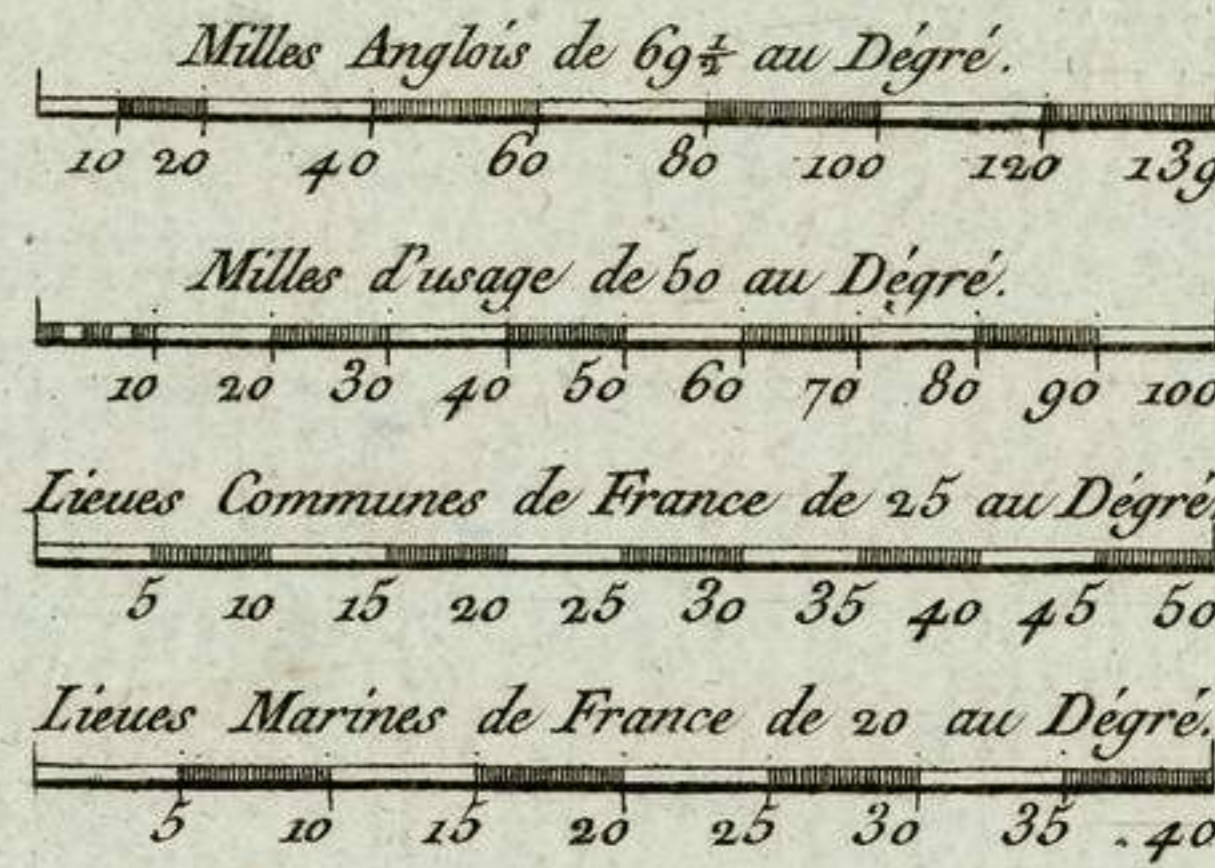 Milles Anglois de 69½ au Dégré.
10 20 40 60 80 100 120 139
Milles d'usage de 50 au Dégré.
10 20 30 40 50 60 70 80 90 100
Lieues Communes de France de 25 au Dégré.
5 10 15 20 25 30 35 40 45 50
Lieues Marines de France de 20 au Dégré.
5 10 15 20 25 30 35 40